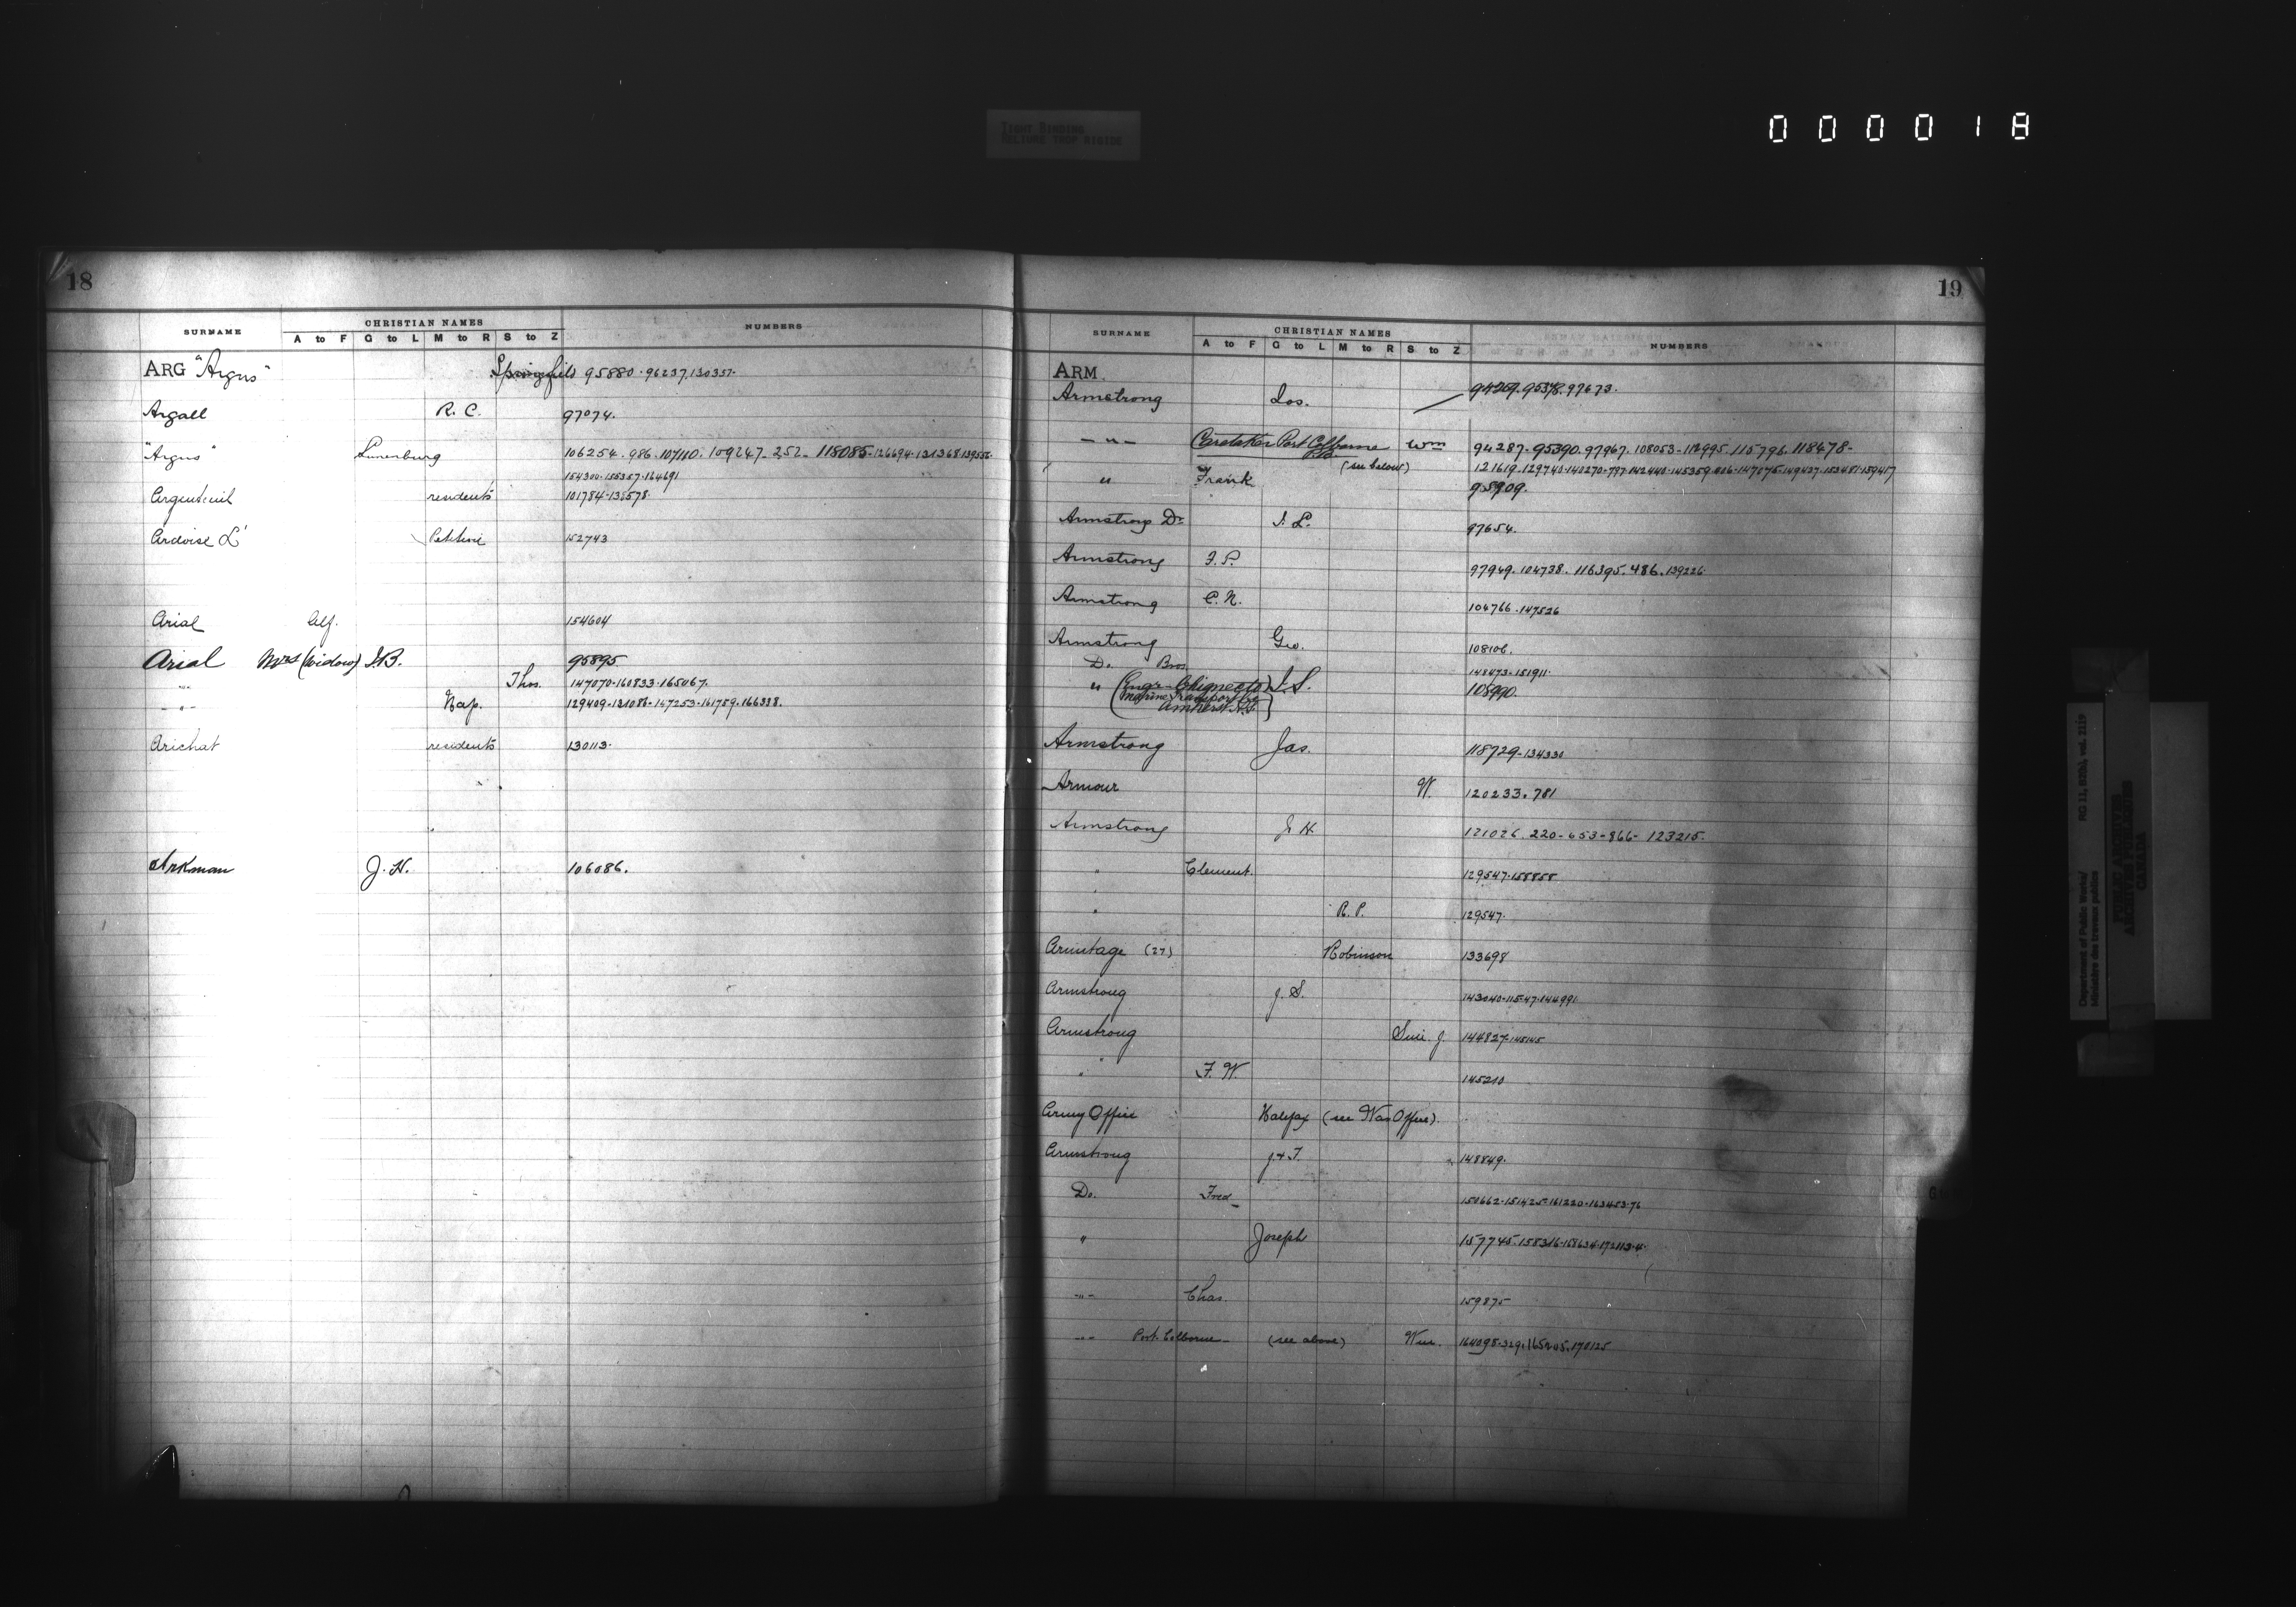 TIGHT BINDING
RELIURE TROP RIGIDE
000018
18
SURNAME CHRISTIAN NAMES NUMBERS
A to F G to L M to R S to Z
ARG "Argus" Springfield 95880.96237.130357.
Argall R. C. 97074.
"Argus" Lunenburg 106254.986.107110.109247-252-118085-126694-131368.139556
154300-155357-164691
Argenteuil residents 101784-135578.
Ardoise L' Petition 152743
Arial Alf. 154604
Arial Mrs (widow) J.B. 95895
-"- Thos. 147070-160833-165067.
-"- Nap. 129409-131086-147253-161759-166338.
Arichat residents 130113.
Arkman J. H. 106086.
19
SURNAME CHRISTIAN NAMES NUMBERS
A to F G to L M to R S to Z
ARM.
Armstrong Jos. 94259.95378.97673.
-"- Caretaker Port Colborne P.O. Wm 94287-95390.97967.108053-112995.115796.118478-
(see below) 121619.129740-140270-797-142440-145359-806-147075-149427-153481-159417
" Frank 95909.
Armstrong Dr. J. L. 97654.
Armstrong F. P. 97949.104738.116395.486.139226
Armstrong C. N. 104766.147526
Armstrong Geo. 108106.
Do. Bros. 148473-151911.
" (Engr- Chignecto J. S. 108990.
Marine Transport Co
Amherst N.S.)
Armstrong Jas. 118729-134330
Armour W. 120233.781
Armstrong J. H. 121026.220-653-866-123215.
" Clement. 129547-158858
" R. P. 129547.
Armitage (27) Robinson 133698
Armstrong J. S. 143040-115-47-144991
Armstrong J. 144827-145145
" F. W. 145210
Army Office Halifax (see War Office).
Armstrong J & T. 148849.
Do. Fred 150662-151425-161220-163453-76
" Joseph 157745.158316-158634-172113-4.
-"- Chas. 159875
-"- Port Colborne- (see above) Wm. 164098-329.165205.170125
Department of Public Works/ RG 11, B2(b), vol. 2119
Ministère des travaux publics
PUBLIC ARCHIVES
ARCHIVES PUBLIQUES
CANADA